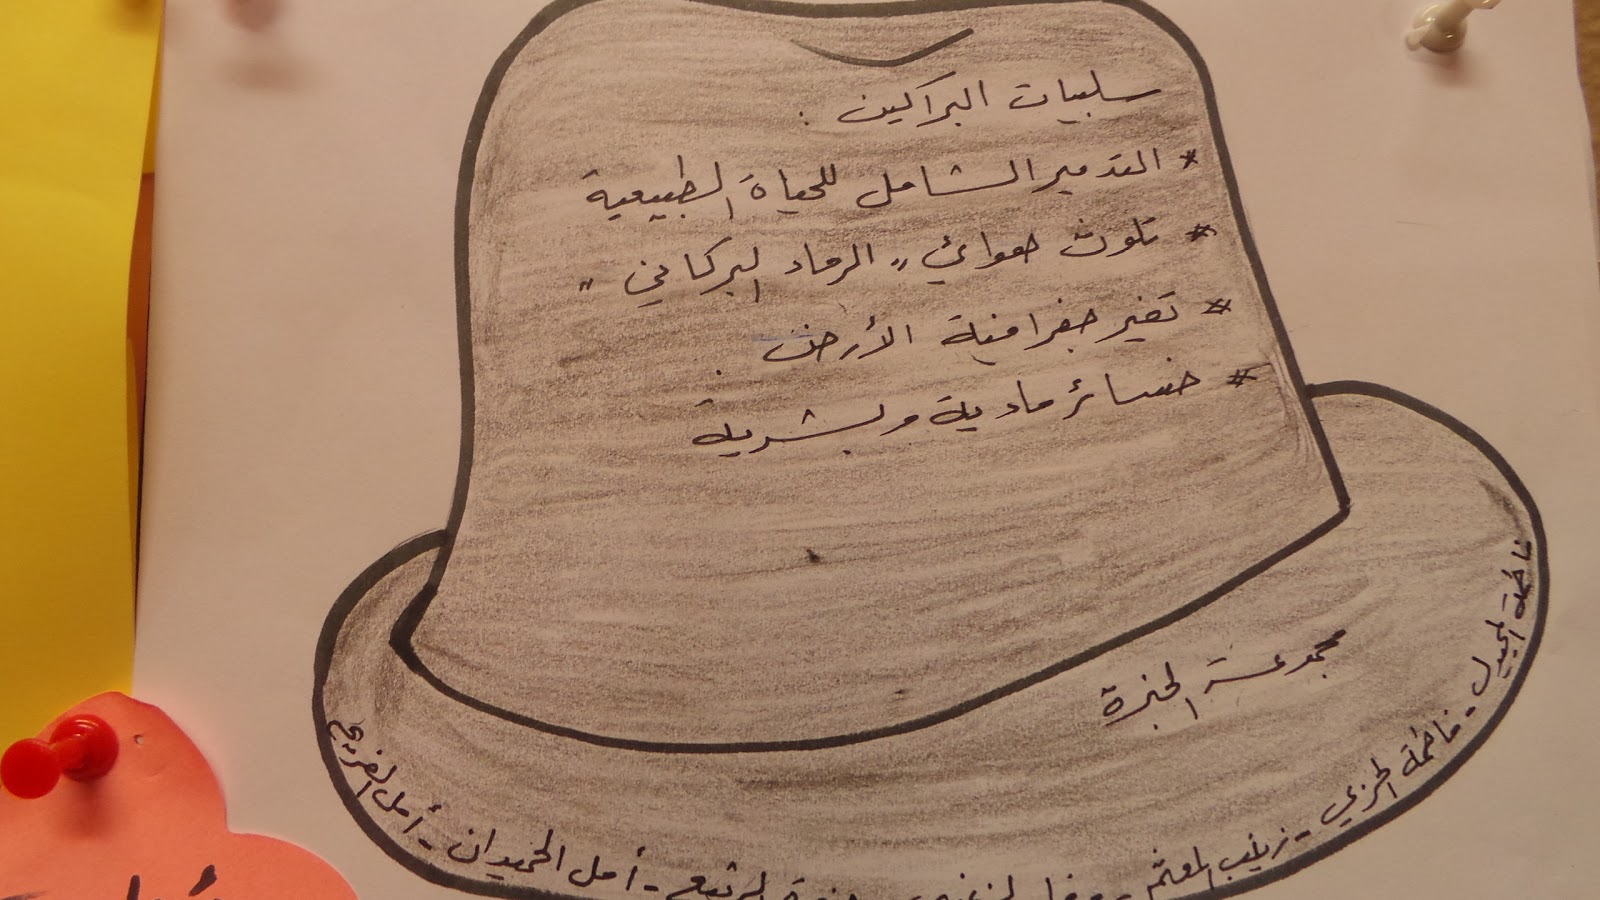 سلبيات البراكين :
* التدمير الشامل للحياة الطبيعية
* تلوث هوائي " الرماد البركاني "
* تغير جغرافية الأرض .
* خسائر مادية وبشرية
مجموعة الخبرة
فاطمة المجيدل - فاطمة الحزبي - زينب المعثم - أمل الحميدان - أمل الفريح